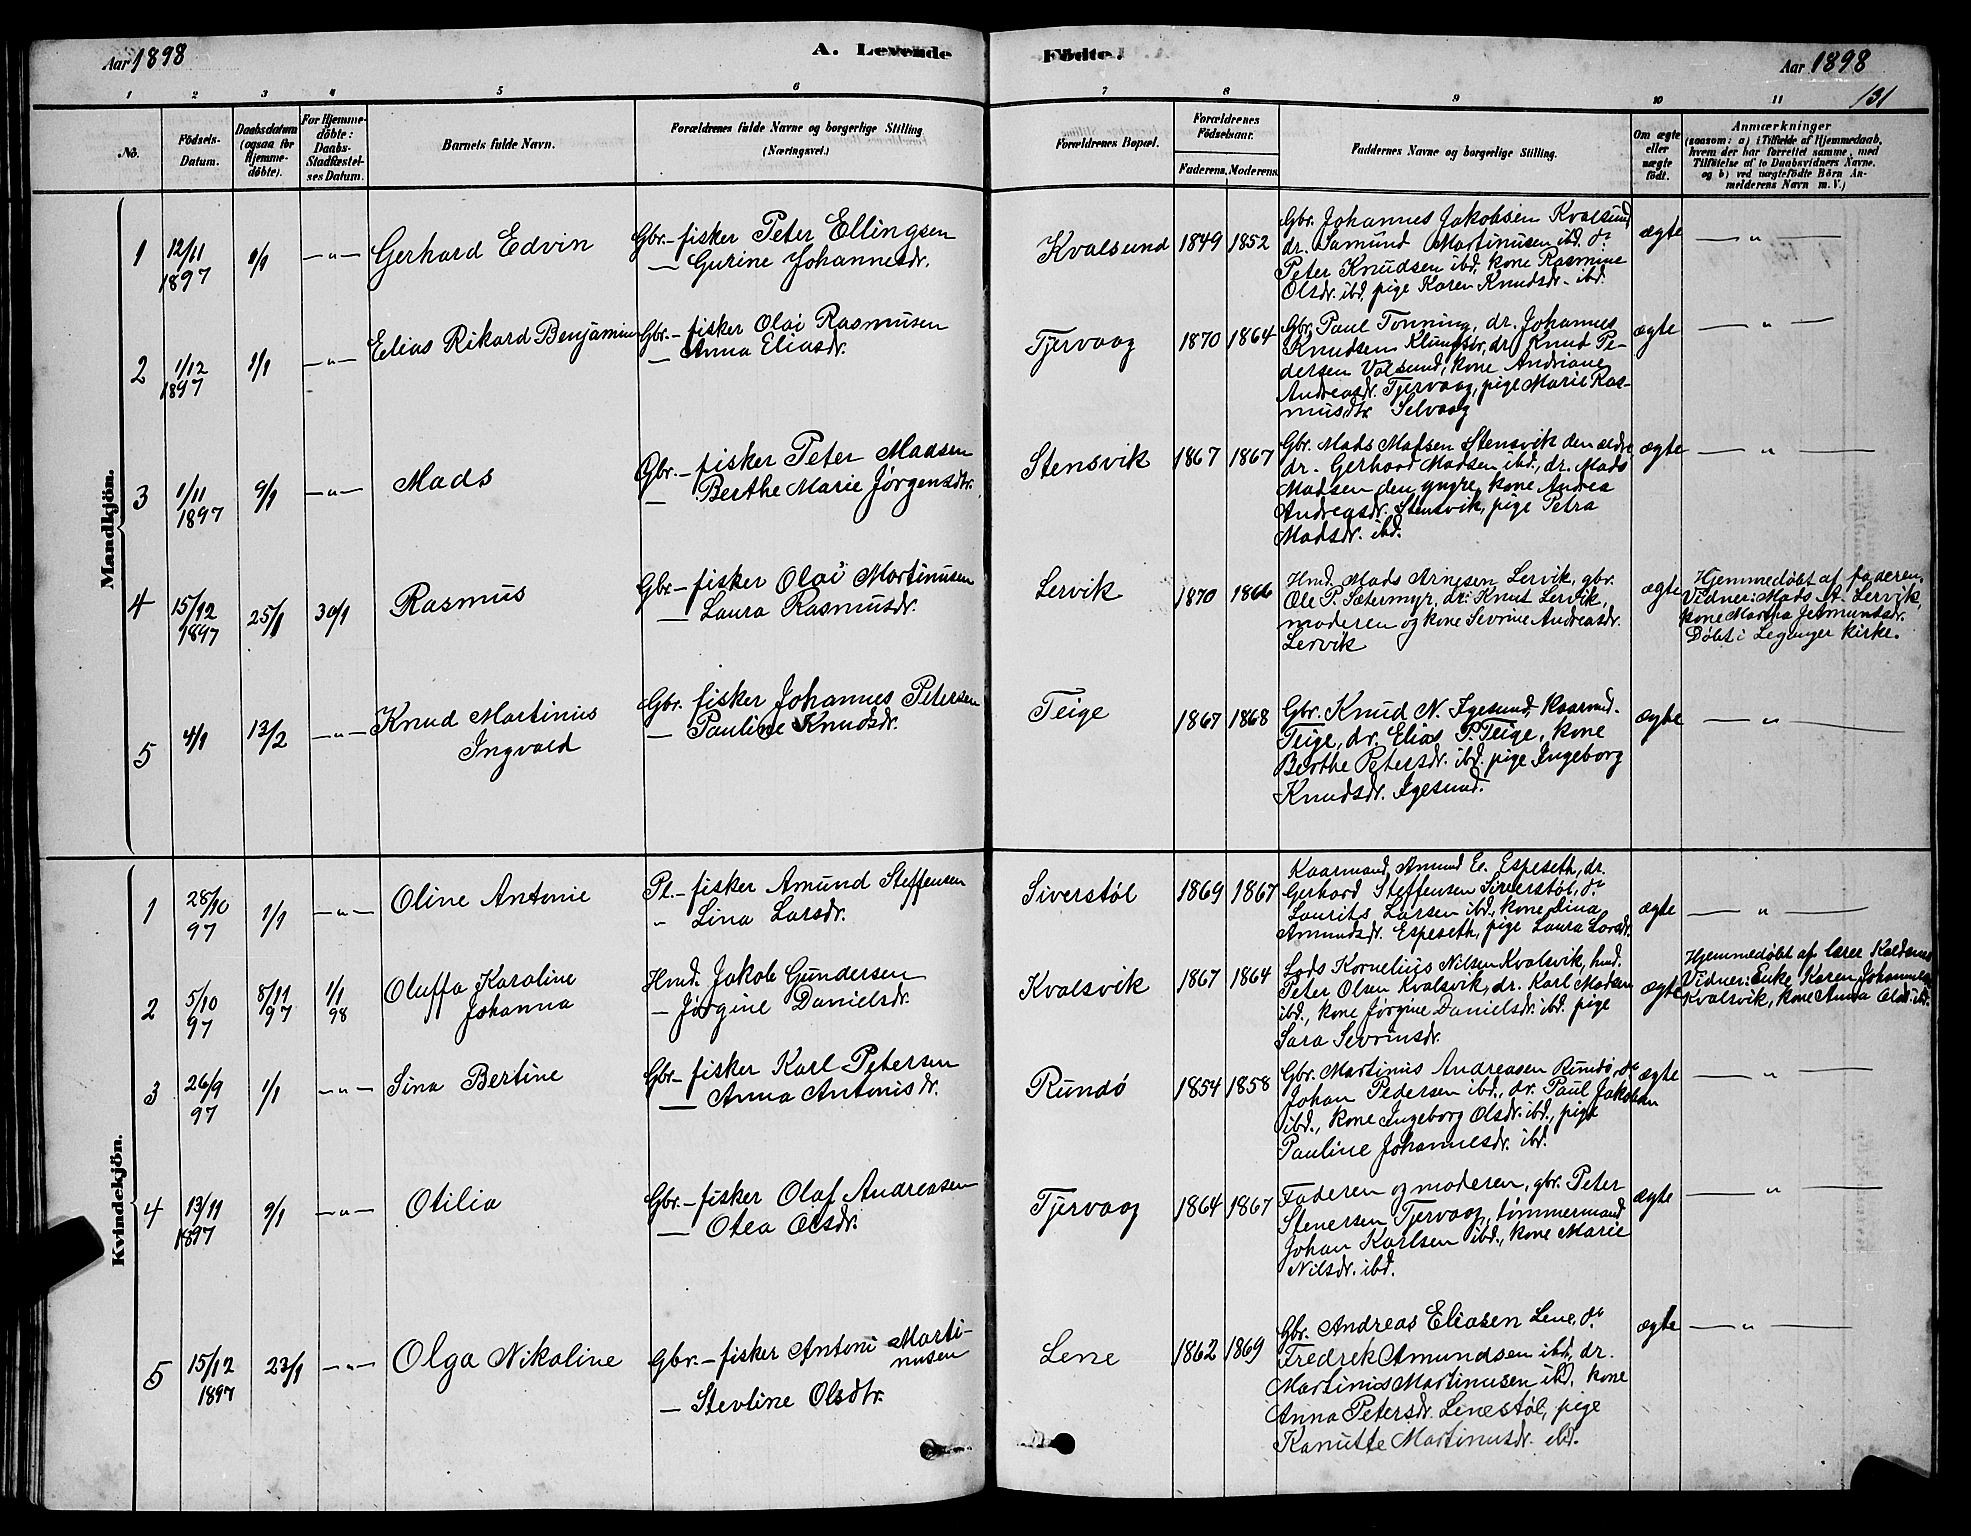 Aar 1898
A. Levende
Födte.
Aar 1898
131
1 2 3 4 5 6 7 8 9 10 11
No.
Födsels-
Datum.
Daabsdatum
(ogsaa for
Hjemme-
döbte).
For Hjemme-
döbte:
Daabs-
Stadfæstel-
ses Datum.
Barnets fulde Navn.
Forældrenes fulde Navne og borgerlige Stilling
(Næringsvei.)
Forældrenes Bopæl.
Forældrenes
Födselsaar.
Faderens. Moderens.
Faddernes Navne og borgerlige Stilling.
Om ægte
eller
uægte
født.
Anmærkninger
(saasom: a) i Tilfælde af Hjemmedaab,
hvem der har forrettet samme, med
Tilföielse af to Daabsvidners Navne.
og b) ved uægtefödte Börn An-
melderens Navn m. V.)
Mandkjön.
1
12/11
1897
1/1
—„—
Gerhard Edvin
Gbr.-fisker Peter Ellingsen
— Gurine Johannesdr.
Kvalsund
1849 1852
Gbr. Johannes Jakobsen Kvalsund
dr. Samund Martinusen ibd. do
Peter Knudsen ibd, kone Rasmine
Olsdr. ibd. pige Karen Knudsdr. ibd.
ægte
— „ —
2
1/12
1897
1/1
—„—
Elias Rikard Benjamin
Gbr.-fisker Olai Rasmusen
— Anna Eliasdr.
Tjervaag
1870 1864
Gbr. Paul Tonning, dr. Johannes
Knudsen Klungsør, dr. Knud Pe-
dersen Valsund, kone Andriane
Andreasdr. Tjervaag, pige Marie Ras-
musdtr. Selvaag
ægte
— „ —
3
1/11
1897
9/1
—„—
Mads
Gbr.-fisker Peter Madsen
— Berthe Marie Jørgensdtr.
Stensvik
1867 1867
Gbr. Mads Madsen Stensvik den ældre
dr. Gerhard Madsen ibd., dr. Mads
Madsen den yngre, kone Andrea
Andreasdr. Stensvik, pige Petra
Madsdr. ibd.
ægte
— „ —
4
15/12
1897
25/1
30/1
Rasmus
Gbr.-fisker Olai Martinusen
— Laura Rasmusdr.
Lervik
1870 1866
Hmd. Mads Arnesen Lervik, gbr.
Ole P. Sætermyr, dr. Knut Lervik,
moderen og kone Sevrine Andreasdr.
Lervik
ægte
Hjemmedöbt af faderen.
Vidner: Mads A. Lervik,
kone Martha Jetmundsdr.
Döbt i Leganger kirke.
5
4/1
13/2
—„—
Knud Martinius
Ingvald
Gbr. fisker Johannes Petersen
— Pauline Knudsdr.
Teige
1867 1868
Gbr. Knud N. Igesund, kaarmd.
Teige, dr. Elias P. Teige, kone
Berthe Petersdr. ibd. pige Ingeborg
Knudsdr. Igesund.
ægte
— „ —
Kvindekjön.
1
28/10
97
1/1
—„—
Oline Antonie
Pl.-fisker Amund Steffensen
„ Lina Larsdr.
Siverstøl
1869 1867
Kaarmand Amund E. Espeseth, dr.
Gerhard Steffensen Siverstøl, do
Laurits Larsen ibd., kone Lina
Amundsdr. Espeseth, pige Laura Larsdr.
ægte
— „ —
2
5/10
97
8/11
97
1/1
98
Oluffa Karoline
Johanna
Hmd. Jakob Gundersen
— Jørgine Danielsdr.
Kvalsvik
1867 1864
Lods Kornelius Nilsen Kvalsvik, hmd.
Peter Olsen Kvalsvik, dr. Karl Madsen
ibd., kone Jørgine Danielsdr. ibd. pige
Sara Sevrinsdr.
ægte
Hjemmedöbt af lærer
Vidner: Enke Karen Johannes
Kvalsvik, kone Anna Olsdr. ibd.
3
26/9
97
1/1
—„—
Sina Bertine
Gbr.-fisker Karl Petersen
— Anna Antonisdr.
Rundö
1854 1858
Gbr. Martinus Andreasen Rundö, do
Johan Pedersen ibd., dr. Paul Jakobsen
ibd., kone Ingeborg Olsdr. ibd., pige
Pauline Johannesdr. ibd.
ægte
— „ —
4
13/11
1897
9/1
—„—
Otilia
Gbr.-fisker Olaf Andreasen
— Otea Olsdr.
Tjervaag
1864 1867
Faderen og moderen, gbr. Peter
Stenersen Tjervaag, tømmermand
Johan Karlsen ibd., kone Marie
Nilsdr. ibd.
ægte
— „ —
5
15/12
1897
23/1
—„—
Olga Nikoline
Gbr.-fisker Antoni Marti-
nusen
— Stevline Olsdtr.
Lene
1862 1869
Gbr. Andreas Eliasen Lene, do
Fredrik Amundsen ibd., dr.
Martinus Martinusen ibd. kone
Anna Petersdr. Lenestøl, pige
Kanutte Martinusdr. ibd.
ægte
— „ —